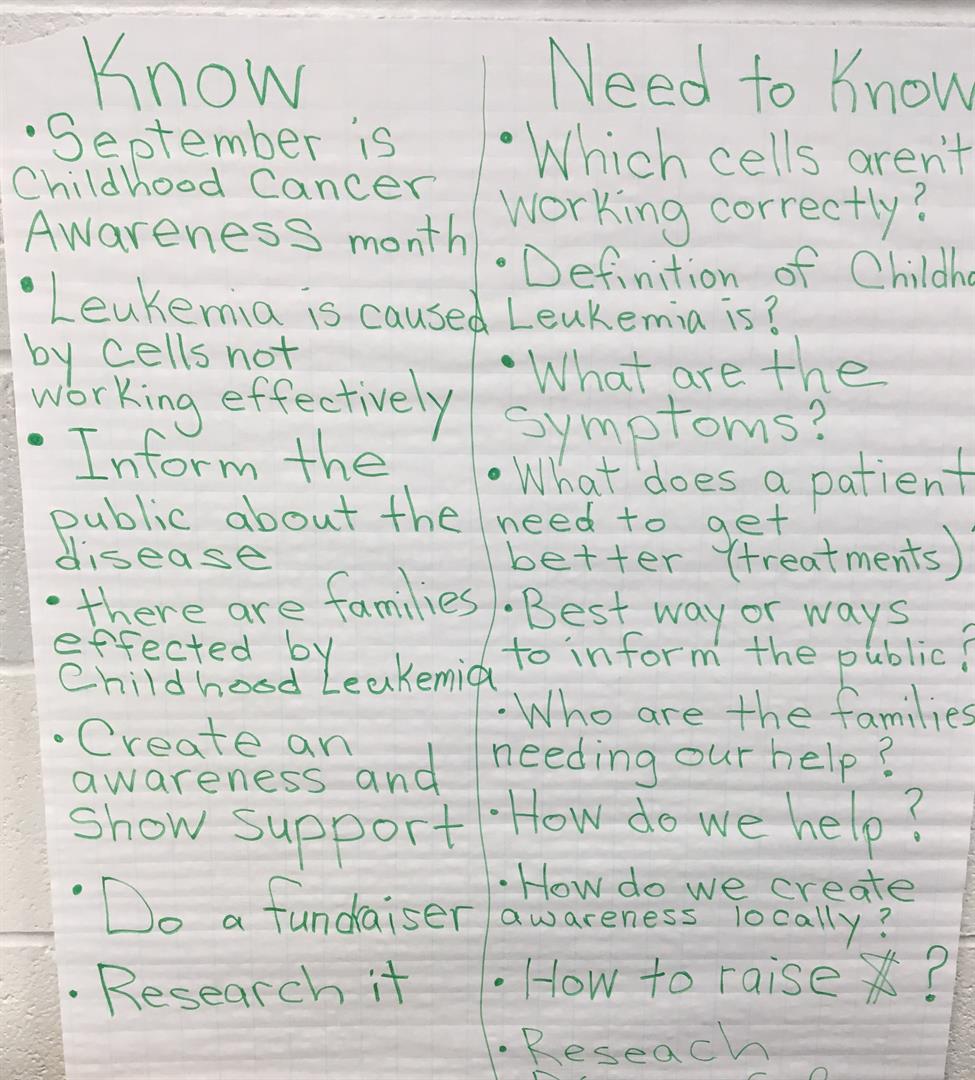 Know
• September is
Childhood Cancer
Awareness month
• Leukemia is caused
by cells not
working effectively
• Inform the
public about the
disease
• there are families
effected by
Childhood Leukemia
• Create an
awareness and
Show Support
• Do a fundaiser
• Research it
Need to Know
• Which cells aren't
working correctly?
• Definition of Childho
Leukemia is?
• What are the
Symptoms?
• What does a patient
need to get
better (treatments)
• Best way or ways
to inform the public?
• Who are the families
needing our help?
• How do we help?
• How do we create
awareness locally?
• How to raise $?
• Reseach